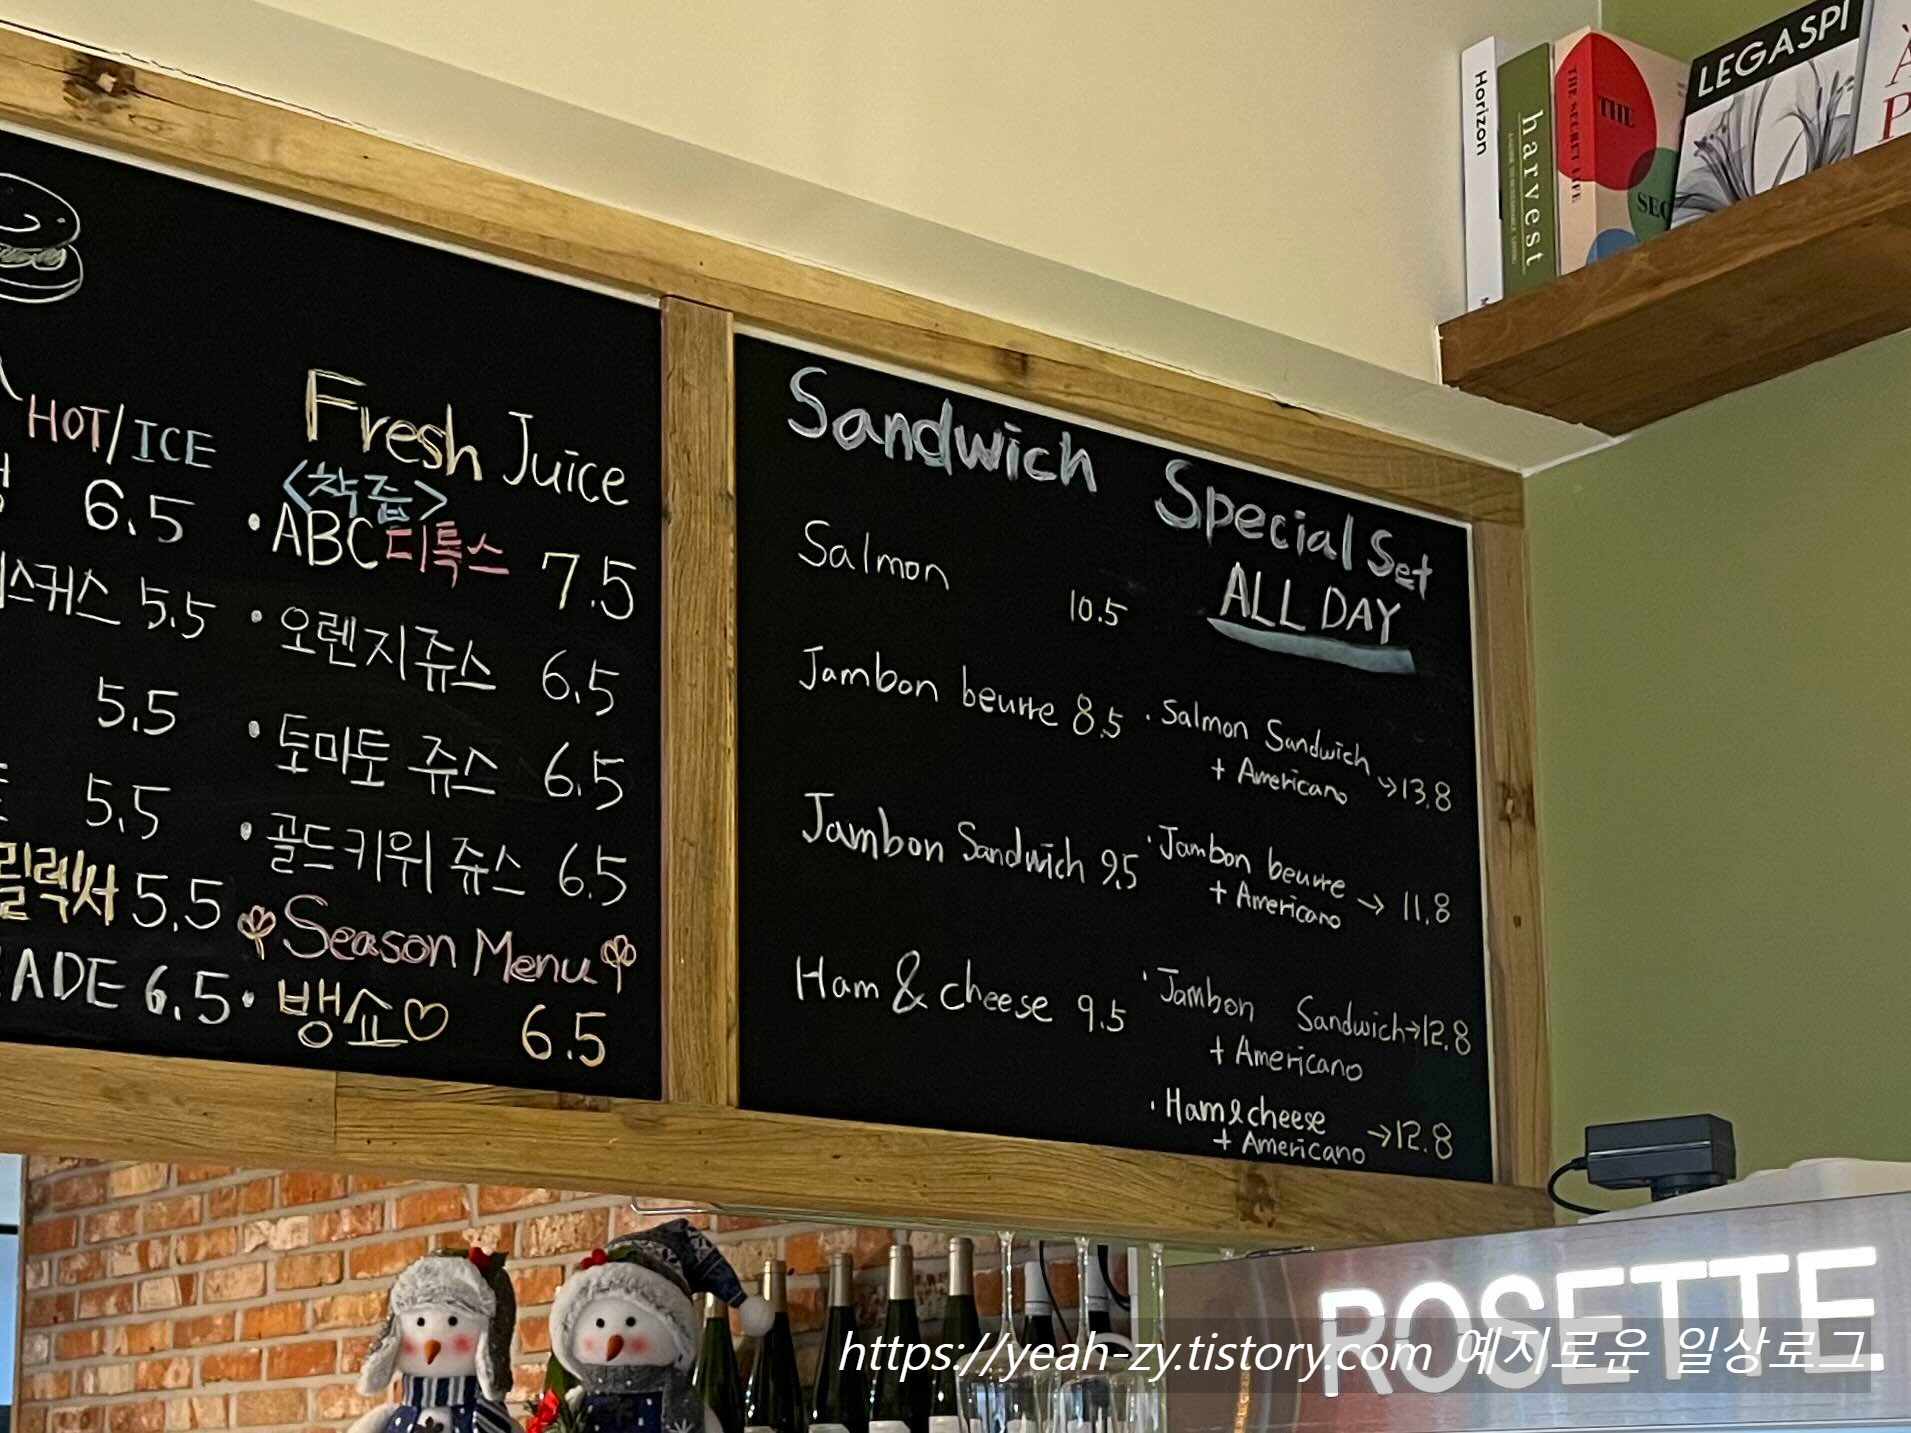 HOT/ICE
6.5
스커스 5.5
5.5
5.5
릴렉서 5.5
ADE 6.5
Fresh Juice
<착즙>
· ABC디톡스 7.5
· 오렌지쥬스 6.5
· 토마토 쥬스 6.5
· 골드키위 쥬스 6.5
Season Menu
· 뱅쇼♡ 6.5
Sandwich
Salmon 10.5
Jambon beurre 8.5
Jambon Sandwich 9.5
Ham & cheese 9.5
Special Set
ALL DAY
· Salmon Sandwich
+ Americano →13.8
· Jambon beurre
+ Americano → 11.8
· Jambon Sandwich→12.8
+ Americano
· Ham&cheese
+ Americano →12.8
Horizon
harvest
THE SECRET LIFE
THE
SEC
LEGASPI
ROSETTE.
https://yeah-zy.tistory.com 예지로운 일상로그